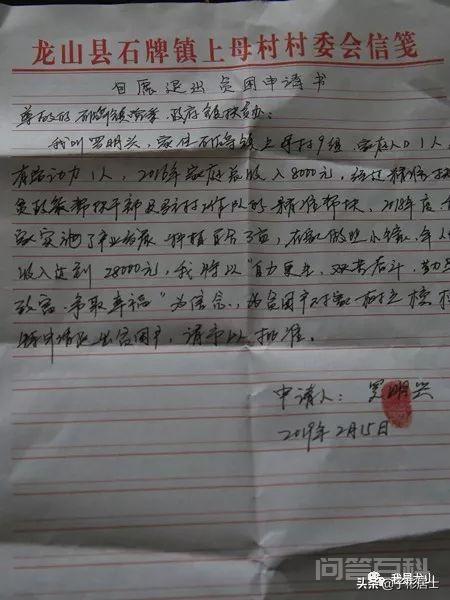 龙山县石牌镇上母村村委会信笺
自愿退出贫困申请书
尊敬的石牌镇党委、政府镇扶贫办:
我叫罗明兴,家住石牌镇上母村9组,家有人口1人,
有劳动力1人,2016年家庭总收入8000元,经过精准扶
贫政策帮扶干部及驻村工作队的精准帮扶,2018年度
家实施了产业发展,种植百合3亩,在家做些小,年人
收入达到28000元,我将以"自力更生、艰苦奋斗、勤劳
致富、争取幸福"为信念,为贫困户树立榜
特申请退出贫困户,请予以批准。
申请人:罗明兴
2019年2月15日
我是龙山
头条@子彬居士
问答百科